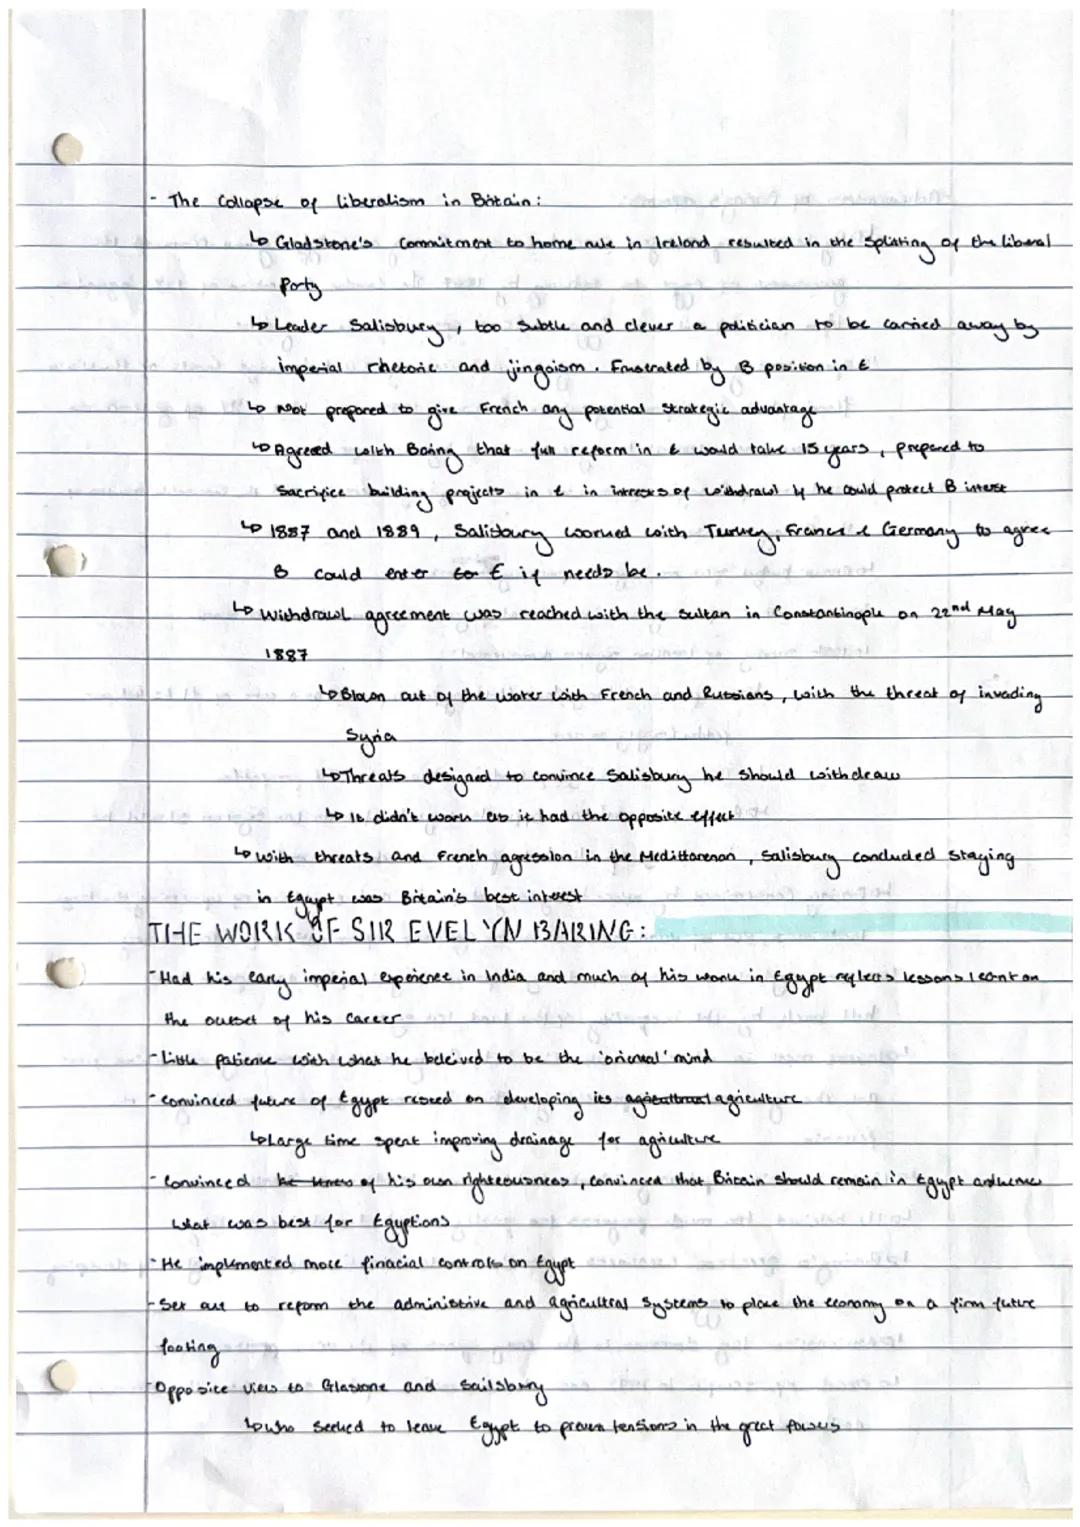 - The Collapse of liberalism in Britain:
↳ Gladstone's commitment to home rule in Ireland resulted in the splitting of the liberal
Party
↳ Leader Salisbury, too subtle and clever a politician to be carried away by
imperial rhetoric and jingoism. Frustrated by B position in E
↳ Not prepared to give French any potential strategic advantage
↳ Agreed with Baring that full reform in E would take 15 years, prepared to
sacrifice building projects in E in intrests of withdrawl if he could protect B interest
↳ 1887 and 1889, Salisbury worked with Turkey, France & Germany to agree
B could enter E if needs be.
↳ Withdrawl agreement was reached with the sultan in Constantinople on 22nd May
1887
↳ Blown out of the water with French and Russians, with the threat of invading
Syria
↳ Threats designed to convince Salisbury he should withdraw
↳ It didn't work as it had the opposite effect
↳ With threats and French agression in the Medittarenan, Salisbury concluded staying
in Egypt was Britain's best interest
THE WORK OF SIR EVELYN BARING:
- Had his early imperial experience in India and much of his work in Egypt reflects lessons learnt on
the outset of his career
- Little patience with what he beleived to be the 'oriental' mind
- convinced future of Egypt rested on developing its agricultural agriculture
↳ Large time spent improving drainage for agriculture
- Convinced of his own righteousness, convinced that Britain should remain in Egypt and
what was best for Egyptians
- He implemented more finacial controls on Egypt
- Set out to reform the administive and agricultral systems to place the economy on a firm future
footing
- Opposite views to Glastone and Sailsbury
↳ who seeked to leave Egypt to preven tensions in the great powers